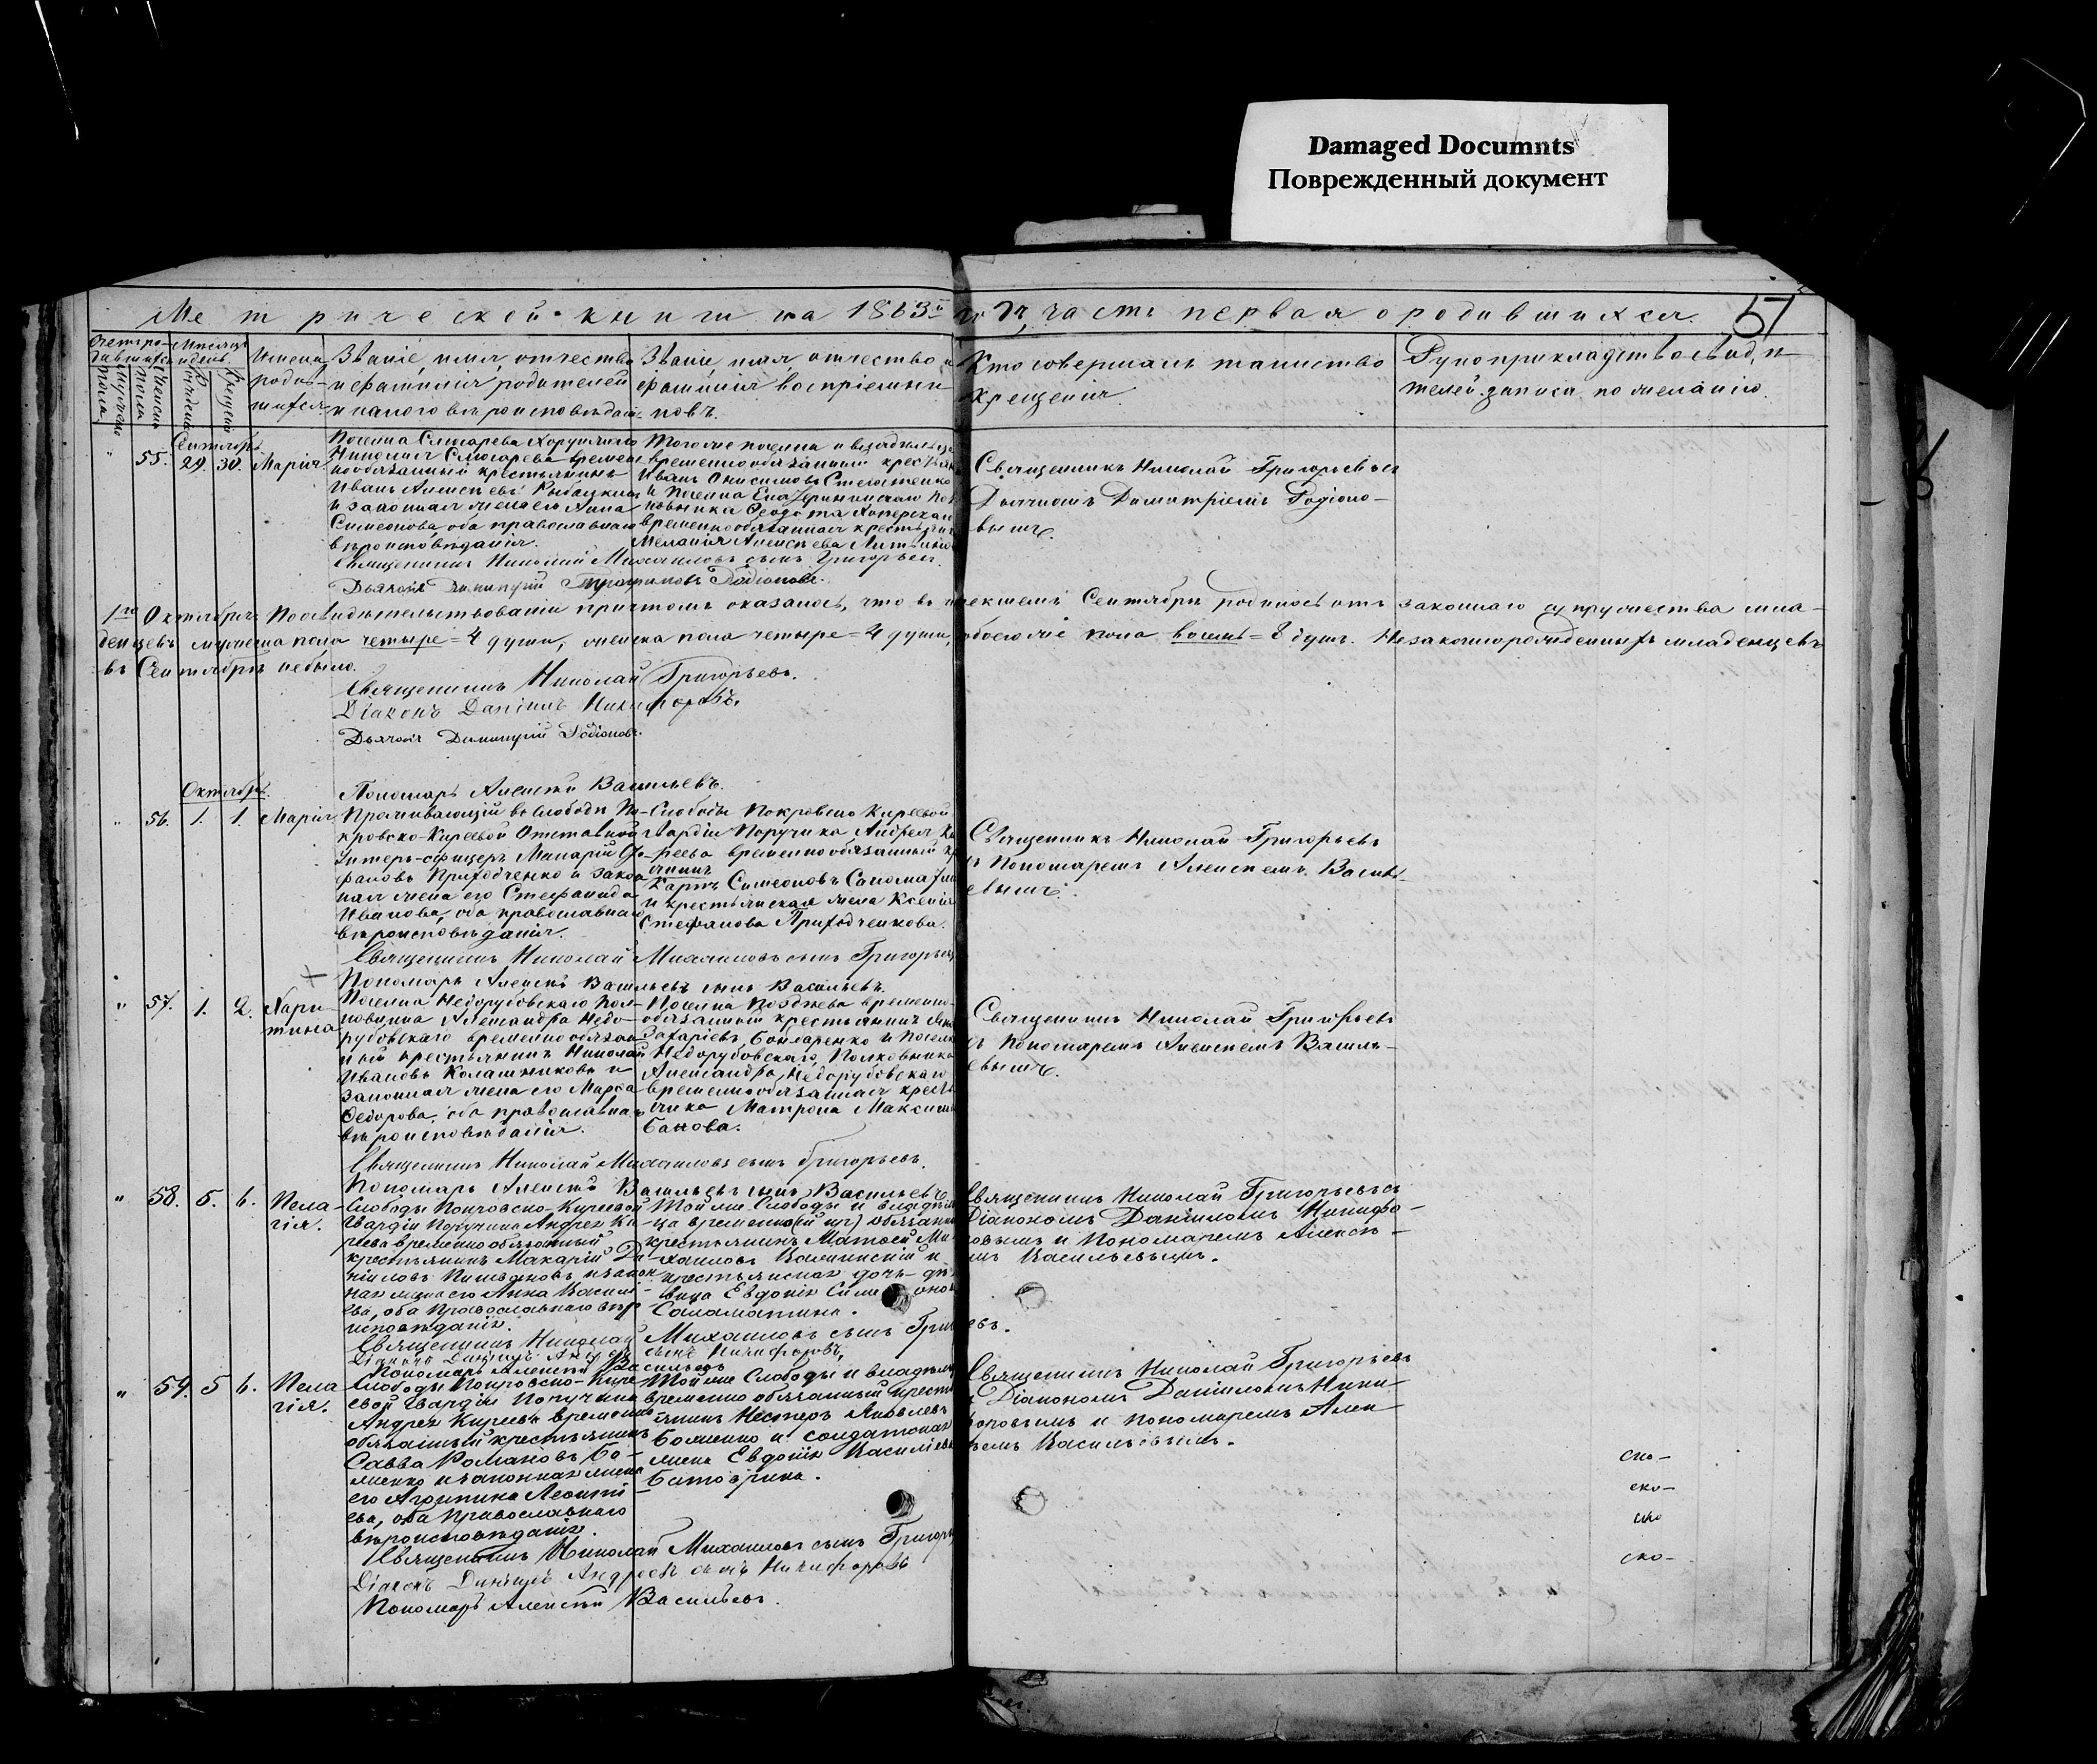 Damaged Documnts
Поврежденный документ
Метрической книги на 1863й годъ, часть первая о родившихся.
57
Счетъ ро-
дившихся
Мѣсяцъ
и день
Мужеска
пола
Женска
пола
Рожденія
Крещенія
Имена
родив-
шихся
Званіе, имя, отчество
и фамилія родителей
и какого вѣроисповѣданія
Званіе, имя отчество и
фамилія воспріемни-
ковъ.
Кто совершалъ таинство
крещенія.
Рукоприкладство свидѣ-
телей записа по желанію.
Сентябрь
" 55. 29. 30. Марія
Поселка Слюсарева Хорунжаго
Николая Слюсарева времен-
нообязанный крестьянинъ
Иванъ Алексѣевъ
и законная жена его Анна
Симеонова, оба православнаго
вѣроисповѣданія.
Того же поселка и владѣльца
временнообязанный крестьян
Иванъ Онисимовъ
и поселка
временнообязанная крестьянк
Меланія Алексѣева
Священникъ Николай Григорьевъ съ
Дьячкомъ Димитріемъ Родіоно-
вымъ.
Священникъ Николай Михаиловъ сынъ Григорьевъ.
Дьячокъ Димитрій Трофимовъ Родіоновъ.
1го Октября По свидѣтельствованіи причтомъ оказалось, что въ истекшемъ Сентябрѣ родилось отъ законнаго супружества мла-
денцевъ мужеска пола четыре = 4 души, женска пола четыре = 4 души, обоего же пола восемь = 8 душъ. Незаконнорожденныхъ младенцевъ
въ Сентябрѣ небыло.
Священникъ Николай Григорьевъ.
Діаконъ Даніилъ Никифоровъ.
Дьячокъ Димитрій Родіоновъ.
Пономарь Алексѣй Васильевъ.
Октябрь.
" 56. 1. 1. Марія
Проживающій въ слободѣ По-
кровско-Киреевой Отставной
Унтеръ-офицеръ Макарій
Приходченко и закон
ная жена его Стефанида
Иванова, оба православнаго
вѣроисповѣданія.
Слободы Покровско Киреевой
Гвардіи Поручика Андрея Ки
реева временнообязанный кр
Карпъ Симеоновъ
и крестьянская жена Ксенія
Стефанова Приходченкова.
Священникъ Николай Григорьевъ
съ Пономаремъ Алексѣемъ Василь-
евымъ.
Священникъ Николай Михаиловъ сынъ Григорьевъ
Пономарь Алексѣй Васильевъ сынъ Васильевъ.
" 57. 1. 2. Хари-
тина
Поселка Недорубовскаго Пол-
ковника Александра Недо-
рубовскаго временнообязан
ный крестьянинъ Николай
Ивановъ Колашниковъ и
законная жена его Марѳа
Ѳедорова, оба православнаго
вѣроисповѣданія.
Поселка Позднѣева временно-
обязанный крестьянинъ
Захаріевъ Бондаренко и поселка
Недорубовскаго, Полковника
Александра Недорубовскаго
временнообязанная кресть
янка Матрона Максим
Банова.
Священникъ Николай Григорьевъ
съ Пономаремъ Алексѣемъ Василь-
евымъ.
Священникъ Николай Михаиловъ сынъ Григорьевъ.
Пономарь Алексѣй Васильевъ сынъ Васильевъ.
" 58. 5. 6. Пела-
гія.
Слободы Покровско-Киреевой
Гвардіи Поручика Андрея Ки-
реева временнообязанный
крестьянинъ Макарій Да-
ніиловъ и закон
ная жена его Анна Василі-
ева, оба Православнаго вѣро
исповѣданія.
Той же Слободы и владѣль
ца временно обязанн
крестьянинъ Матѳей Ми
хаиловъ и
крестьянская дочь дѣ
вица Евдокія Симеонов
Саломатина.
Священникъ Николай Григорьевъ съ
Діакономъ Даніиломъ Никифо-
ровымъ и Пономаремъ Алексѣ-
емъ Васильевымъ.
Священникъ Николай Михаиловъ сынъ Григорьевъ.
Діаконъ Даніилъ Андреевъ сынъ Никифоровъ,
Пономарь Алексѣй Васильевъ
" 59. 5 6. Пела
гія.
Слободы Покровско-Кире
евой Гвардіи Поручика
Андрея Киреева временно
обязанный крестьянинъ
Савва Романовъ Бо-
женко и законная жена
его Агрипина Леонті
ева, оба Православнаго
вѣроисповѣданія.
Той же Слободы и владѣль
временно обязанный крест
янинъ Несторъ Яковлевъ
Боженко и солдатская
жена Евдокія Василіева
Священникъ Николай Григорьевъ
съ Діакономъ Даніиломъ Ники-
форовымъ и Пономаремъ Алек-
сѣемъ Васильевымъ.
Священникъ Николай Михаиловъ сынъ Григорь
Діаконъ Даніилъ Андреевъ сынъ Никифоровъ
Пономарь Алексѣй Васильевъ.
ско-
ско-
ско
ско-